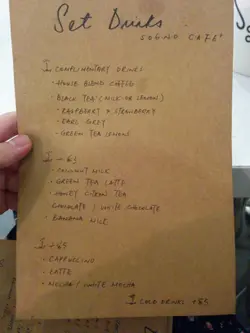 Set Drinks
SOGNO CAFE'
I COMPLIMENTARY DRINKS
- HOUSE BLEND COFFEE
- BLACK TEA (MILK OR LEMON)
- RASPBERRY & STRAWBERRY
- EARL GREY
- GREEN TEA LEMON
I
- COCONUT MILK
- GREEN TEA LATTE
- HONEY CITRON TEA
CHOCOLATE / WHITE CHOCOLATE
- BANANA MILK
I +$5
- CAPPUCCINO
- LATTE
- MOCHA / WHITE MOCHA
I COLD DRINKS +$5